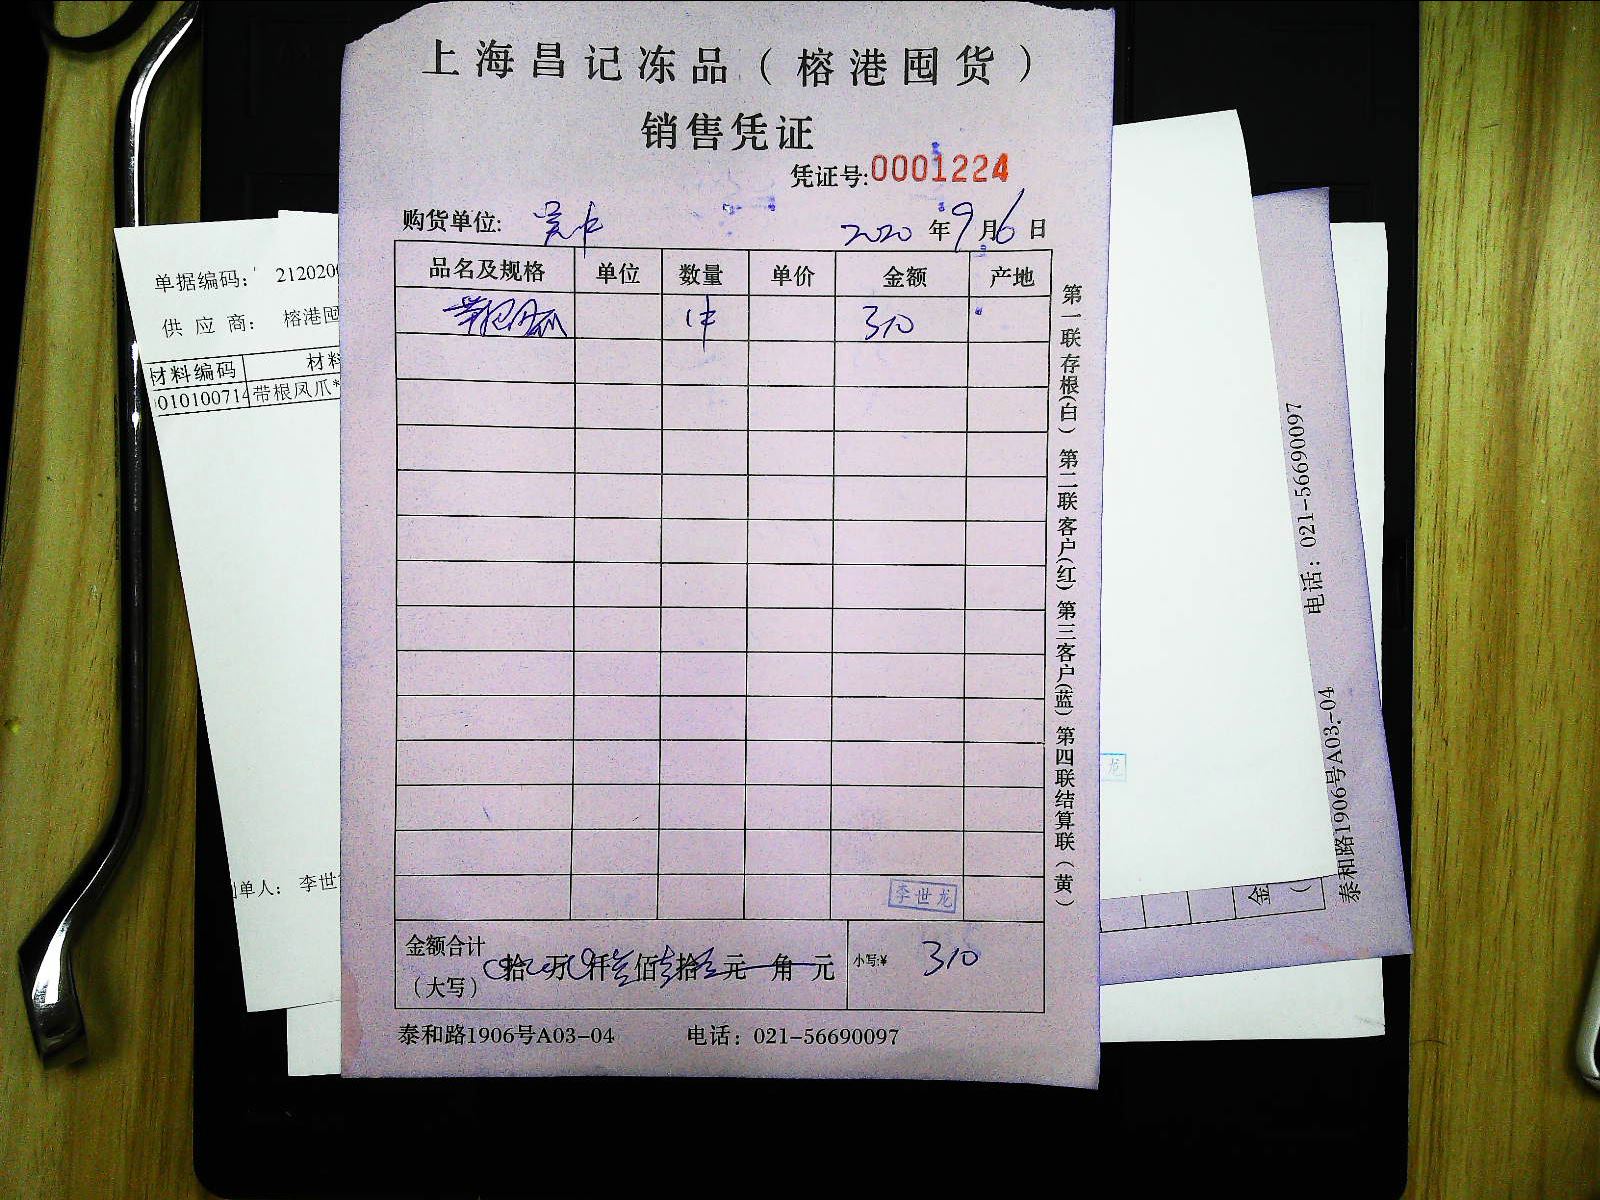 上海昌记冻品（榕港囤货）
销售凭证
凭证号:0001224
购货单位:
2020年9月6日
品名及规格 单位 数量 单价 金额 产地
带根凤爪 1件 310
李世龙
金额合计（大写） 拾 万 仟 叁佰 壹拾 元 角 元 小写:¥ 310
泰和路1906号A03-04 电话：021-56690097
第一联存根(白) 第二联客户(红) 第三客户(蓝) 第四联结算联（黄）
单据编码： 212020
供 应 商： 榕港囤
材料编码 材料
010100714 带根凤爪*
单人： 李世
龙
电话：021-56690097
泰和路1906号A03-04
金
（